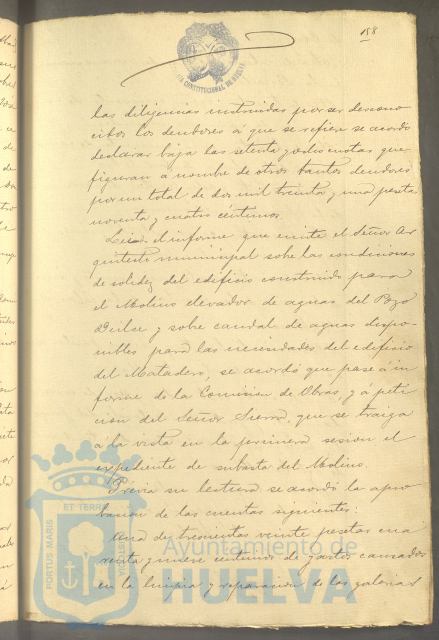 158
CONSTITUCIONAL DE HUELVA
las diligencias instruidas por ser descono
cidos los deudores a que se refiere se acordó
declarar baja las setenta y ocho cuotas que
figuran a nombre de otros tantos deudores
por un total de dos mil treinta y una peseta
noventa y cuatro céntimos.
Leido el informe que emite el Señor Ar
quitecto municipal sobe las condiciones
de solidez del edificio construido para
el Molino elevador de aguas del Pozo
Dulce y sobre caudal de aguas dispo
nibles para las necesidades del edificio
del Matadero, se acordó que pase a in
forme de la Comision de Obras, y á peti
cion del Señor Sierra, que se traiga
a la vista en la primera sesion el
expediente de subasta del Molino.
Previa su lectura se acordó la apro
bacion de las cuentas siguientes:
Una de trescientas veinte pesetas cua
renta y nueve centimos de gastos causados
en la limpia y reparacion de las galerias
PORTUS MARIS
ET TERRAE
CUSTODIA
Ayuntamiento de
HUELVA